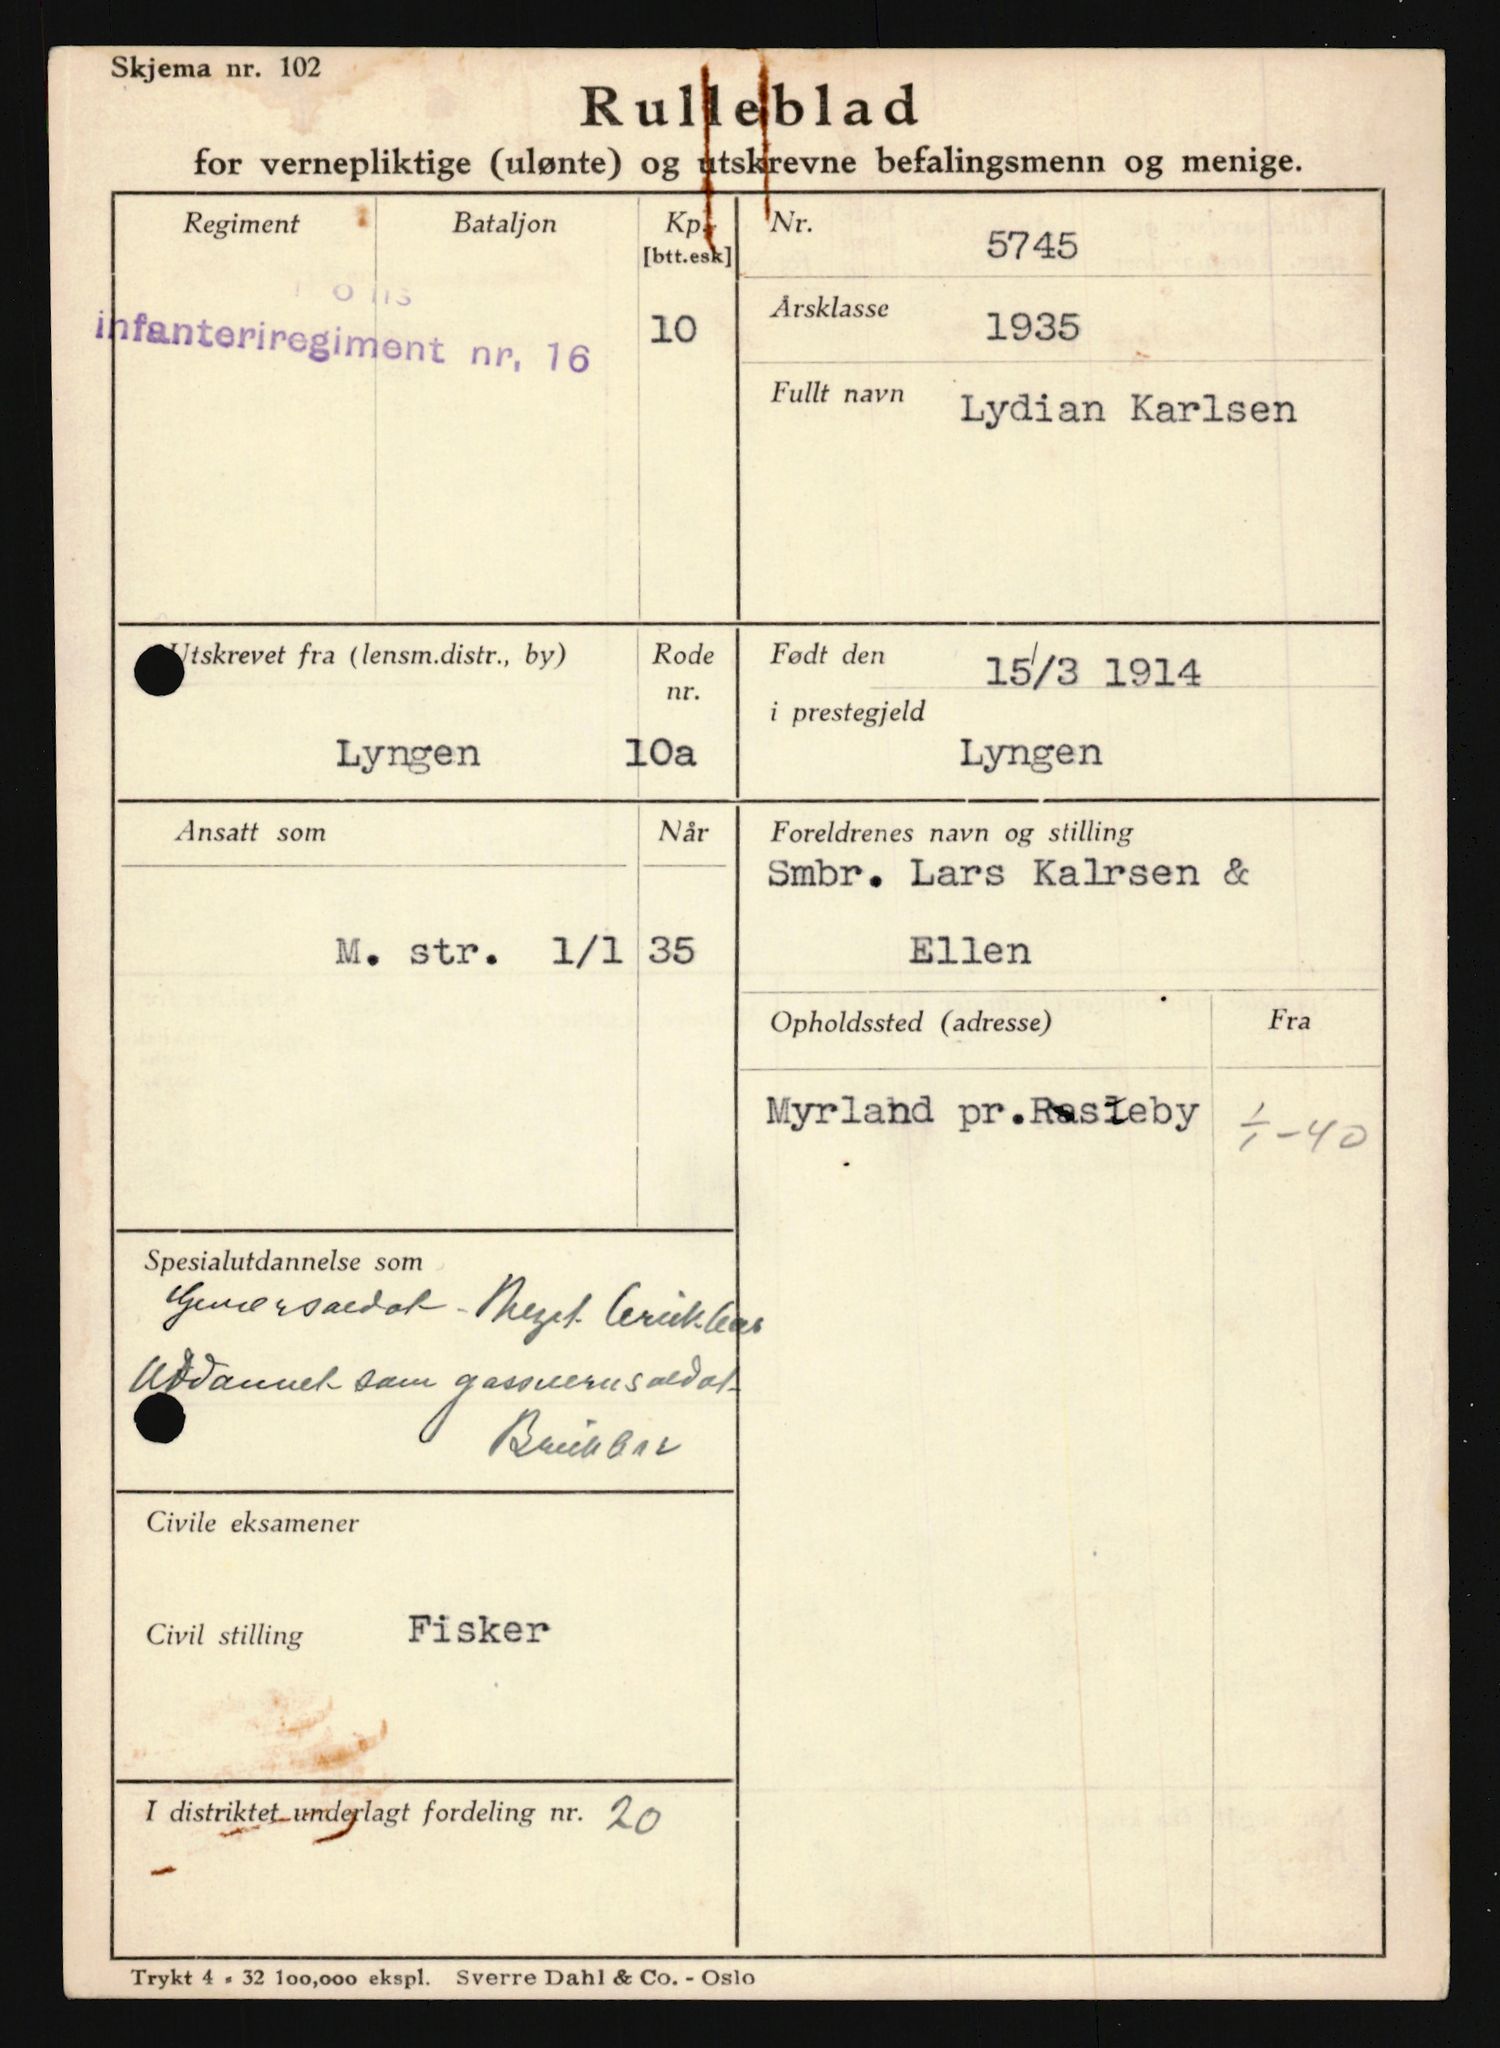 Skjema nr. 102
Rulleblad
for vernepliktige (ulønte) og utskrevne befalingsmenn og menige.
Regiment
Bataljon
Kp.
[btt.esk]
infanteriregiment nr. 16
10
Nr.
5745
Årsklasse
1935
Fullt navn
Lydian Karlsen
Utskrevet fra (lensm.distr., by)
Rode
nr.
Lyngen
10a
Født den
15/3 1914
i prestegjeld
Lyngen
Ansatt som
Når
M. str. 1/1 35
Foreldrenes navn og stilling
Smbr. Lars Kalrsen &
Ellen
Opholdssted (adresse)
Fra
Myrland pr.
1/1-40
Spesialutdannelse som
Meget
Uddannet som gassvernsoldat
Civile eksamener
Civil stilling
Fisker
I distriktet underlagt fordeling nr. 20
Trykt 4 - 32 100,000 ekspl. Sverre Dahl & Co. - Oslo